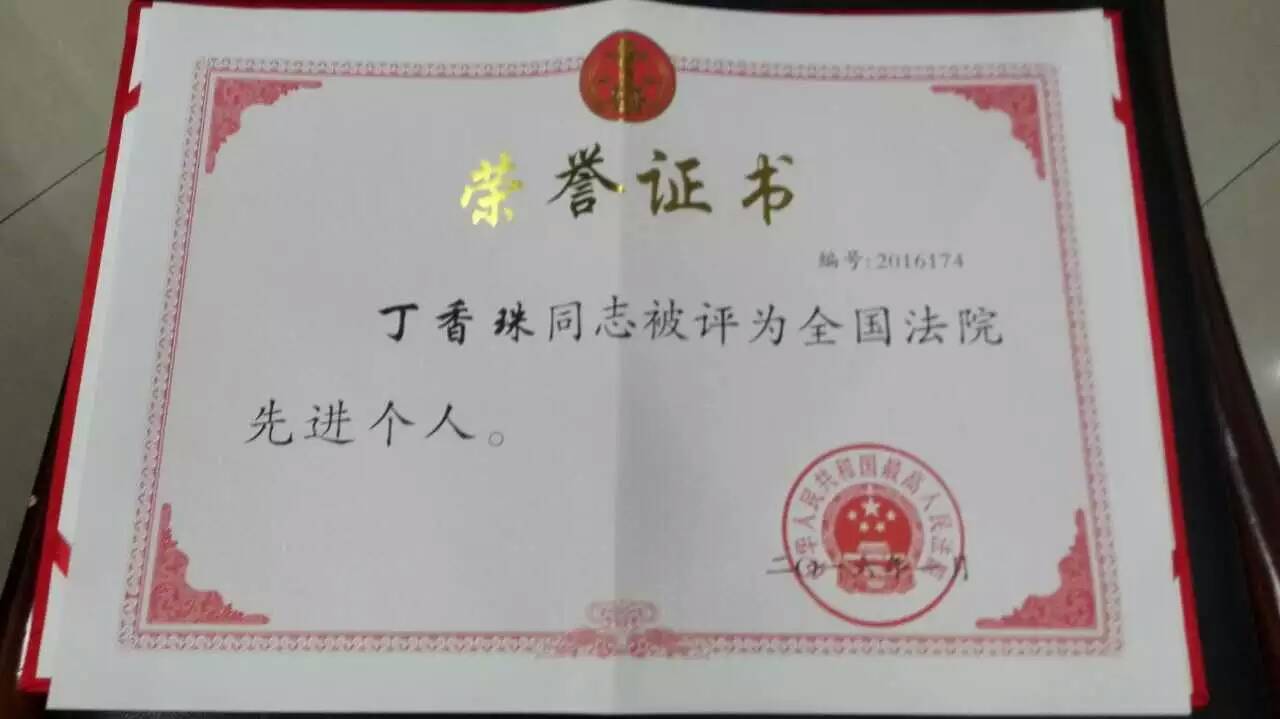 荣誉证书
编号:2016174
丁香珠同志被评为全国法院
先进个人。
中华人民共和国最高人民法院
二〇一六年一月